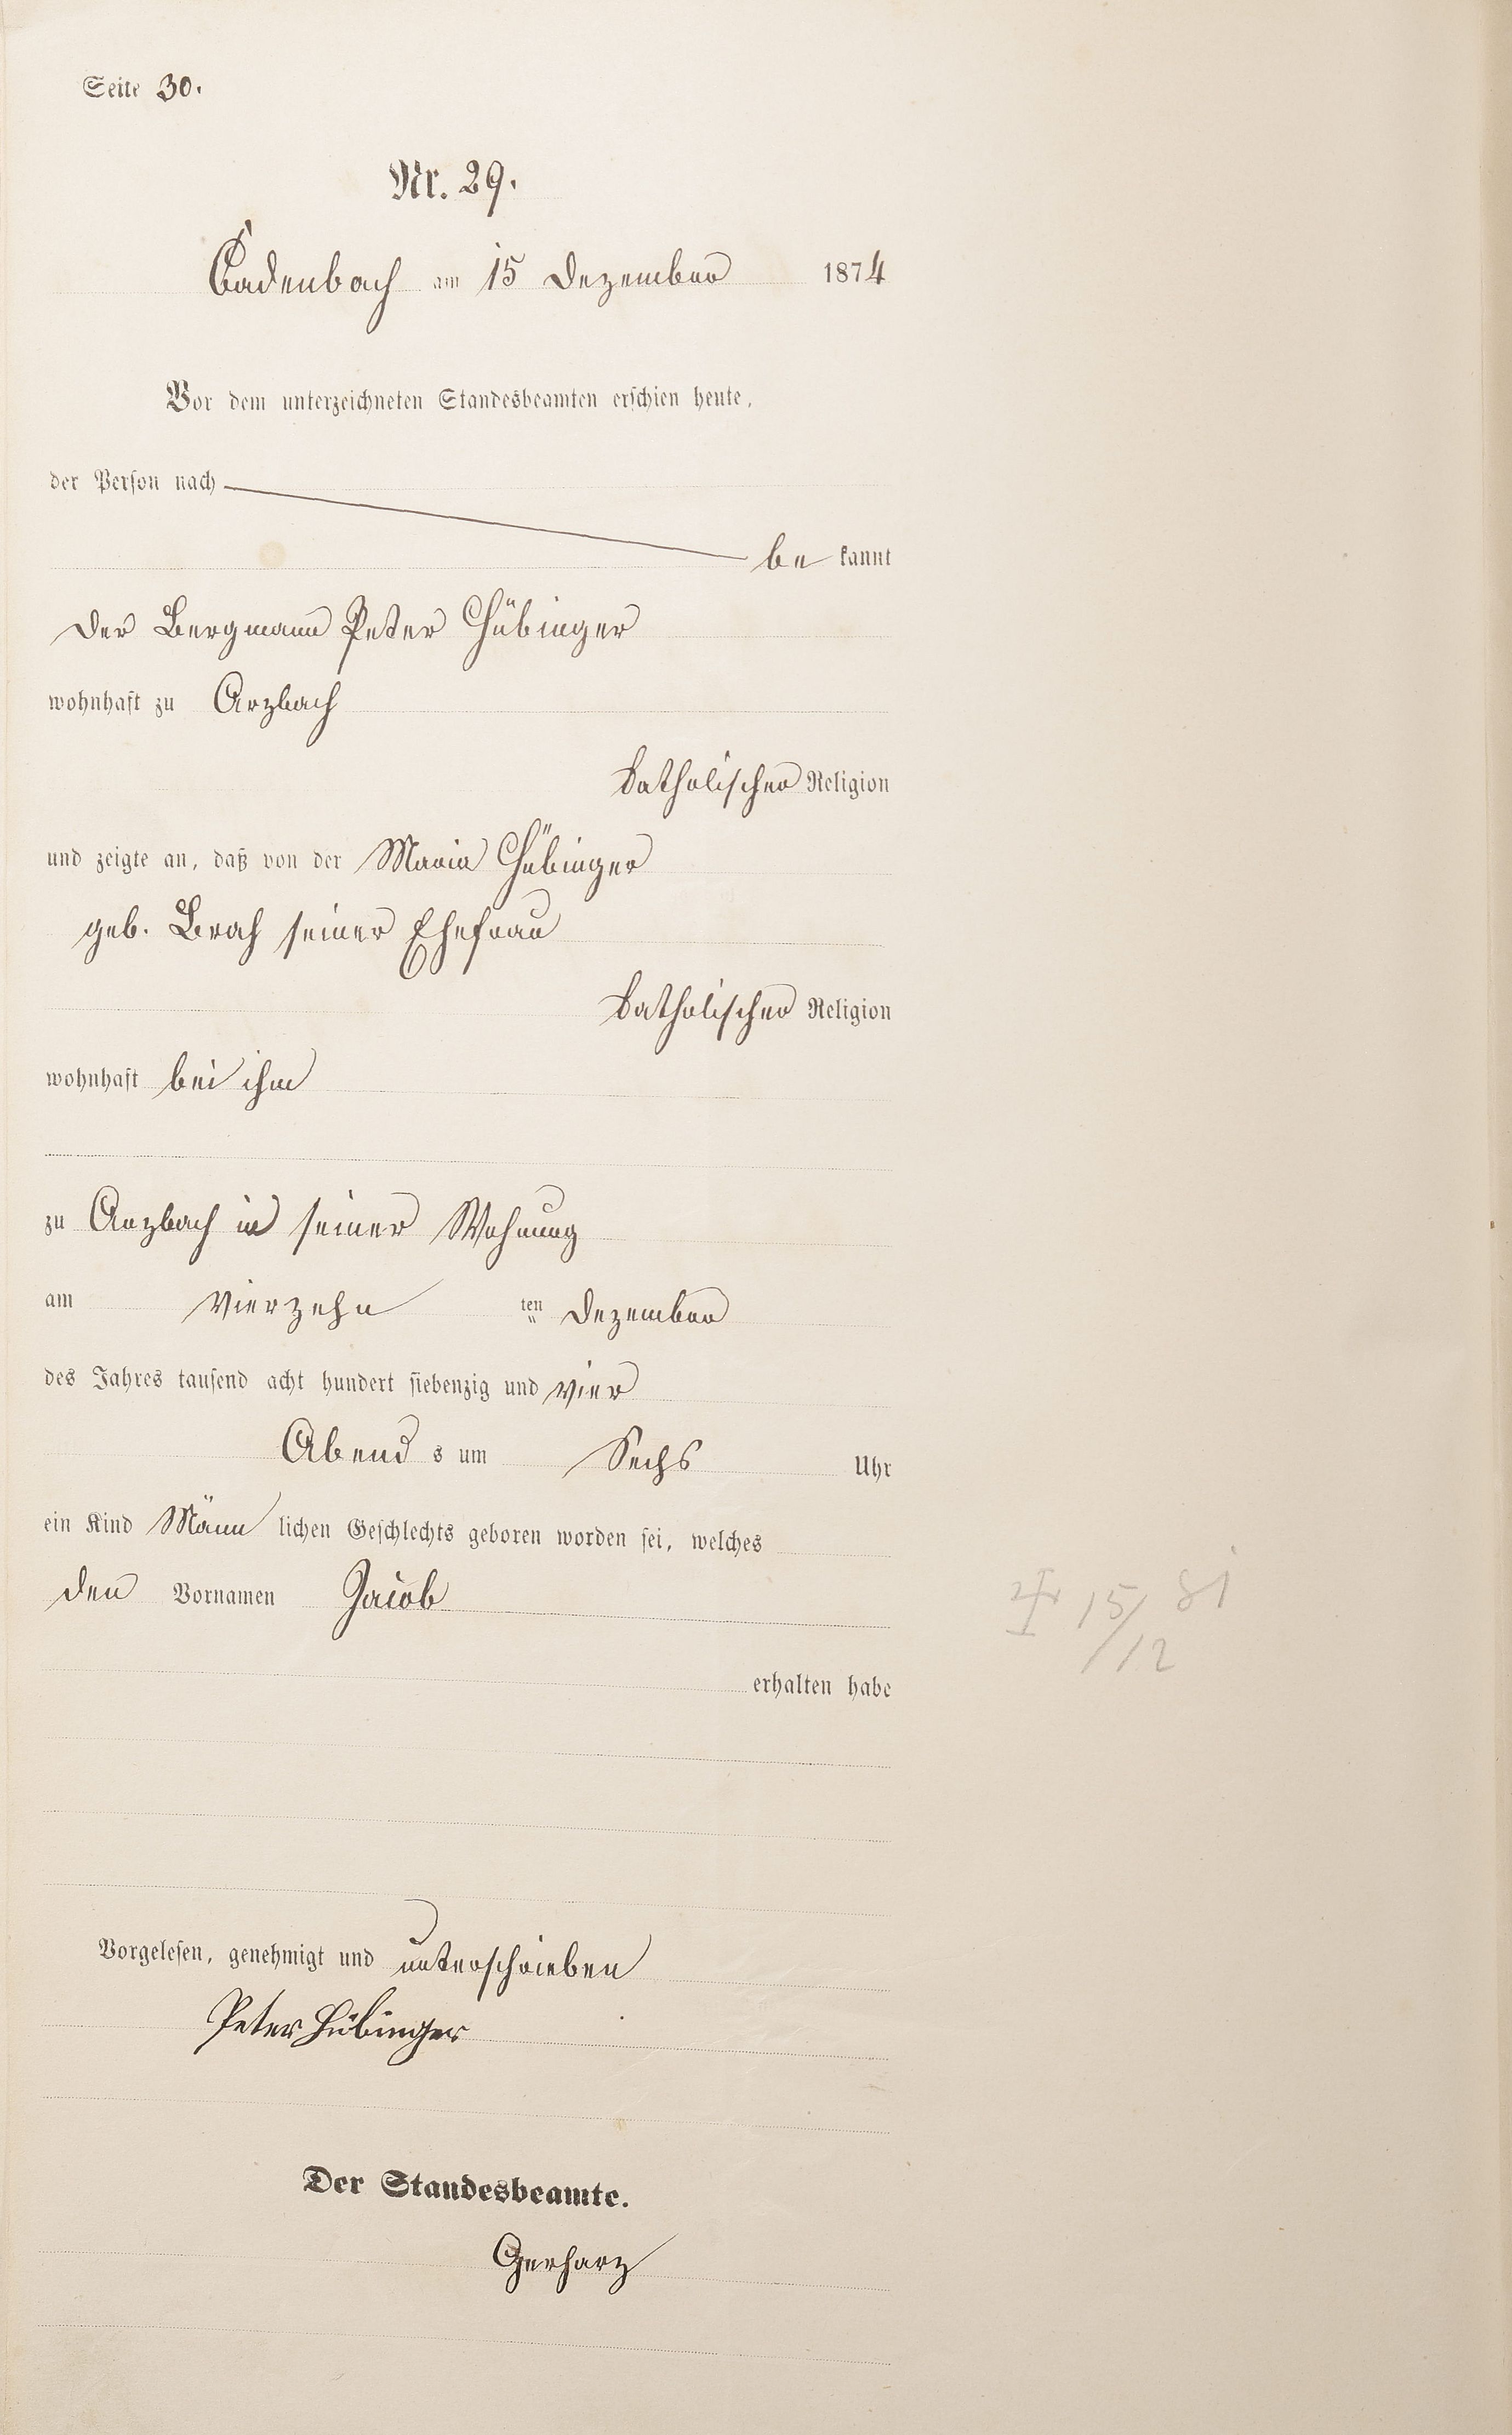 Seite 30.
Nr. 29.
Cadenbach am 15 Dezember 1874
Vor dem unterzeichneten Standesbeamten erschien heute,
der Person nach
be kannt
der Bergmann Peter Hübinger
wohnhaft zu Arzbach
katholischer Religion
und zeigte an, daß von der Maria Hübinger
geb. Brach seiner Ehefrau
katholischer Religion
wohnhaft bei ihm
zu Arzbach in seiner Wohnung
am vierzehn ten Dezember
des Jahres tausend acht hundert siebenzig und vier
Abend s um Sechs Uhr
ein Kind Männ lichen Geschlechts geboren worden sei, welches
den Vornamen Jacob
15/12 81
erhalten habe
Vorgelesen, genehmigt und unterschrieben
Peter Hübinger
Der Standesbeamte.
Gerharz